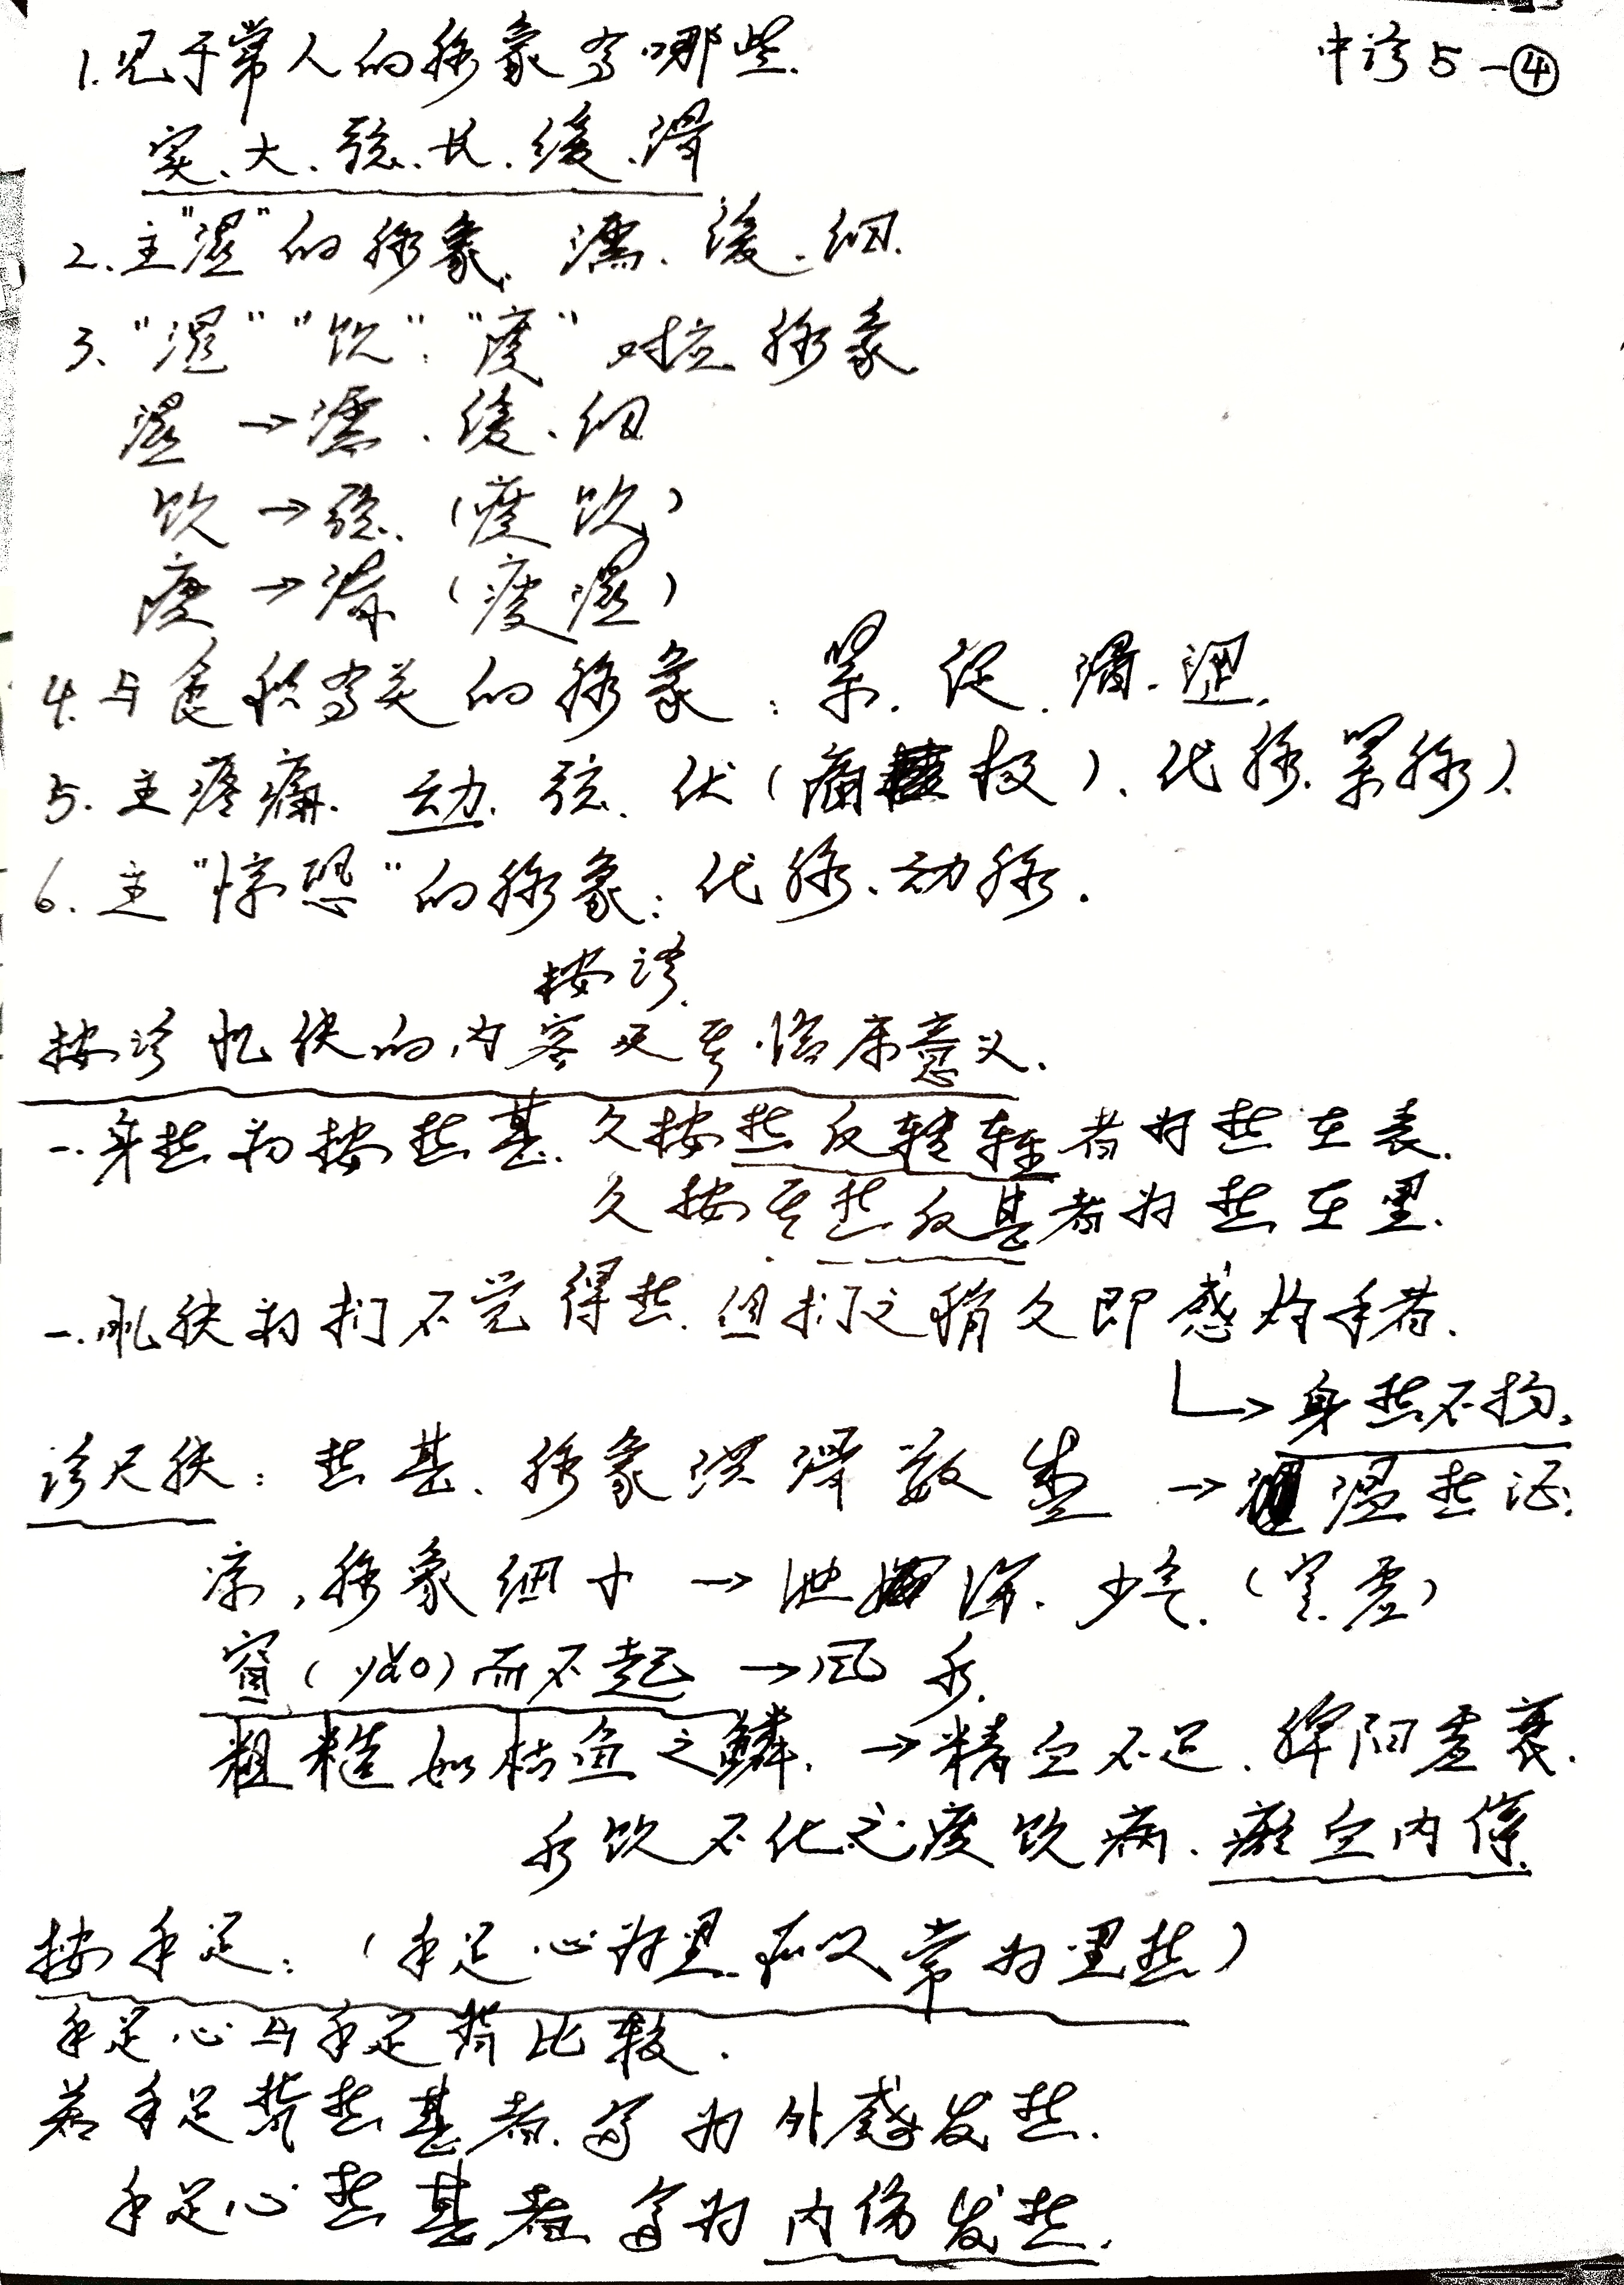 中诊5-④
1.见于常人的脉象有哪些.
实、大、弦、长、缓、滑
2.主"湿"的脉象、濡、缓、细.
3、"湿""饮"、"痰"对应脉象
湿→濡、缓、细
饮→弦(痰饮)
痰→滑(痰湿)
4.与食积有关的脉象:紧、促、滑、涩.
5.主疼痛、动、弦、伏(痛极)、代脉、紧脉).
6.主"惊恐"的脉象:代脉、动脉.
按诊
按诊肌肤的内容及其临床意义.
一.身热初按热甚、久按热反转轻者为热在表.
久按其热反甚者为热在里.
一.肌肤初扪不觉得热.但扪之稍久即感灼手者.
→身热不扬.
诊尺肤:热甚、脉象洪滑数盛→温热证.
凉,脉象细小→泄泻、少气.(气虚)
窅(yǎo)而不起→风水.
粗糙如枯鱼之鳞.→精血不足.脾阳虚衰.
水饮不化之痰饮病、瘀血内停.
按手足:(手足心为里、所以常为里热)
手足心与手足背比较.
若手足背热甚者.多为外感发热.
手足心热甚者多为内伤发热.